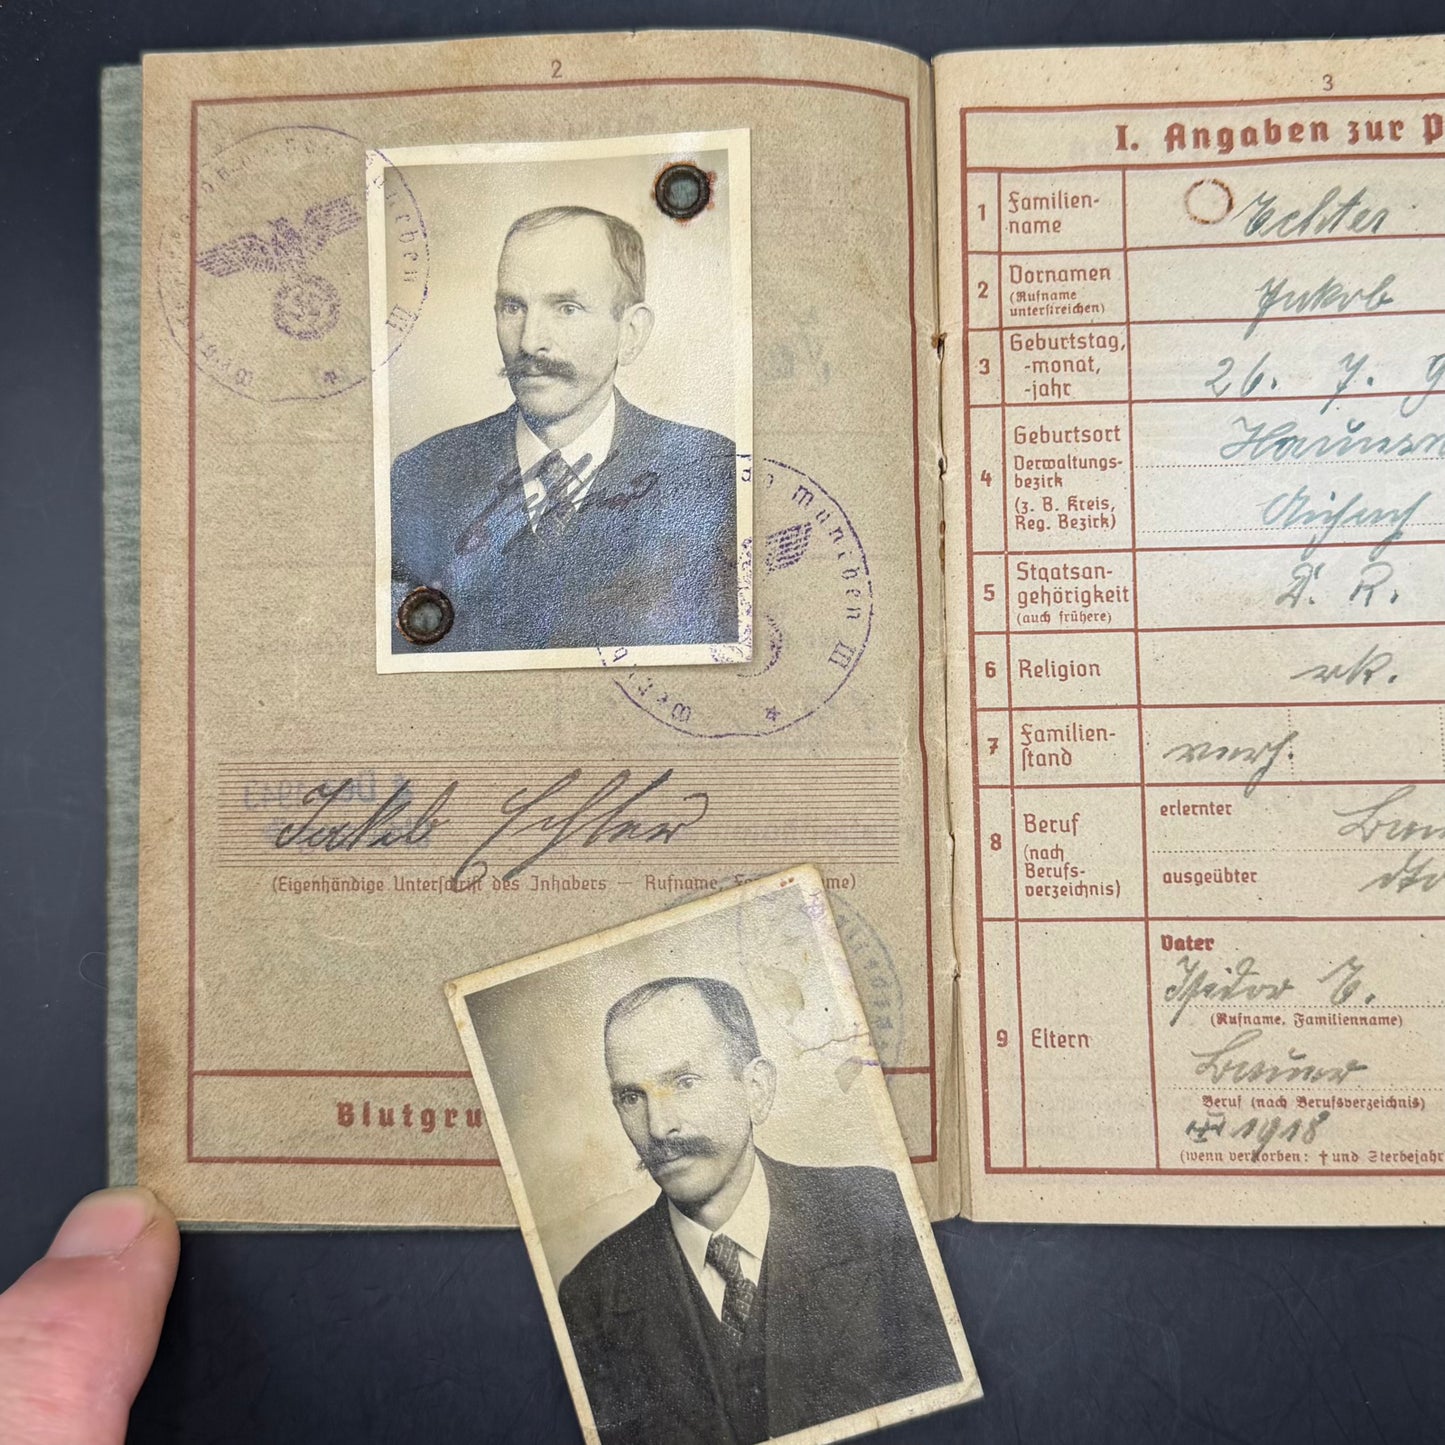 2
München III
München III
Jakob Echter
(Eigenhändige Unterschrift des Inhabers — Rufname,
Blutgru
3
I. Angaben zur P
1 Familien-
name
Echter
2 Vornamen
(Rufname
unterstreichen)
Jakob
3 Geburtstag,
-monat,
-jahr
26. 7. 9
4 Geburtsort
Verwaltungs-
bezirk
(z. B. Kreis,
Reg. Bezirk)
Aichach
5 Staatsan-
gehörigkeit
(auch frühere)
D. R.
6 Religion
rk.
7 Familien-
stand
verh.
8 Beruf
(nach
Berufs-
verzeichnis)
erlernter
ausgeübter
9 Eltern
Vater
Isidor E.
(Rufname, Familienname)
Bauer
Beruf (nach Berufsverzeichnis)
1918
(wenn verstorben: † und Sterbejahr